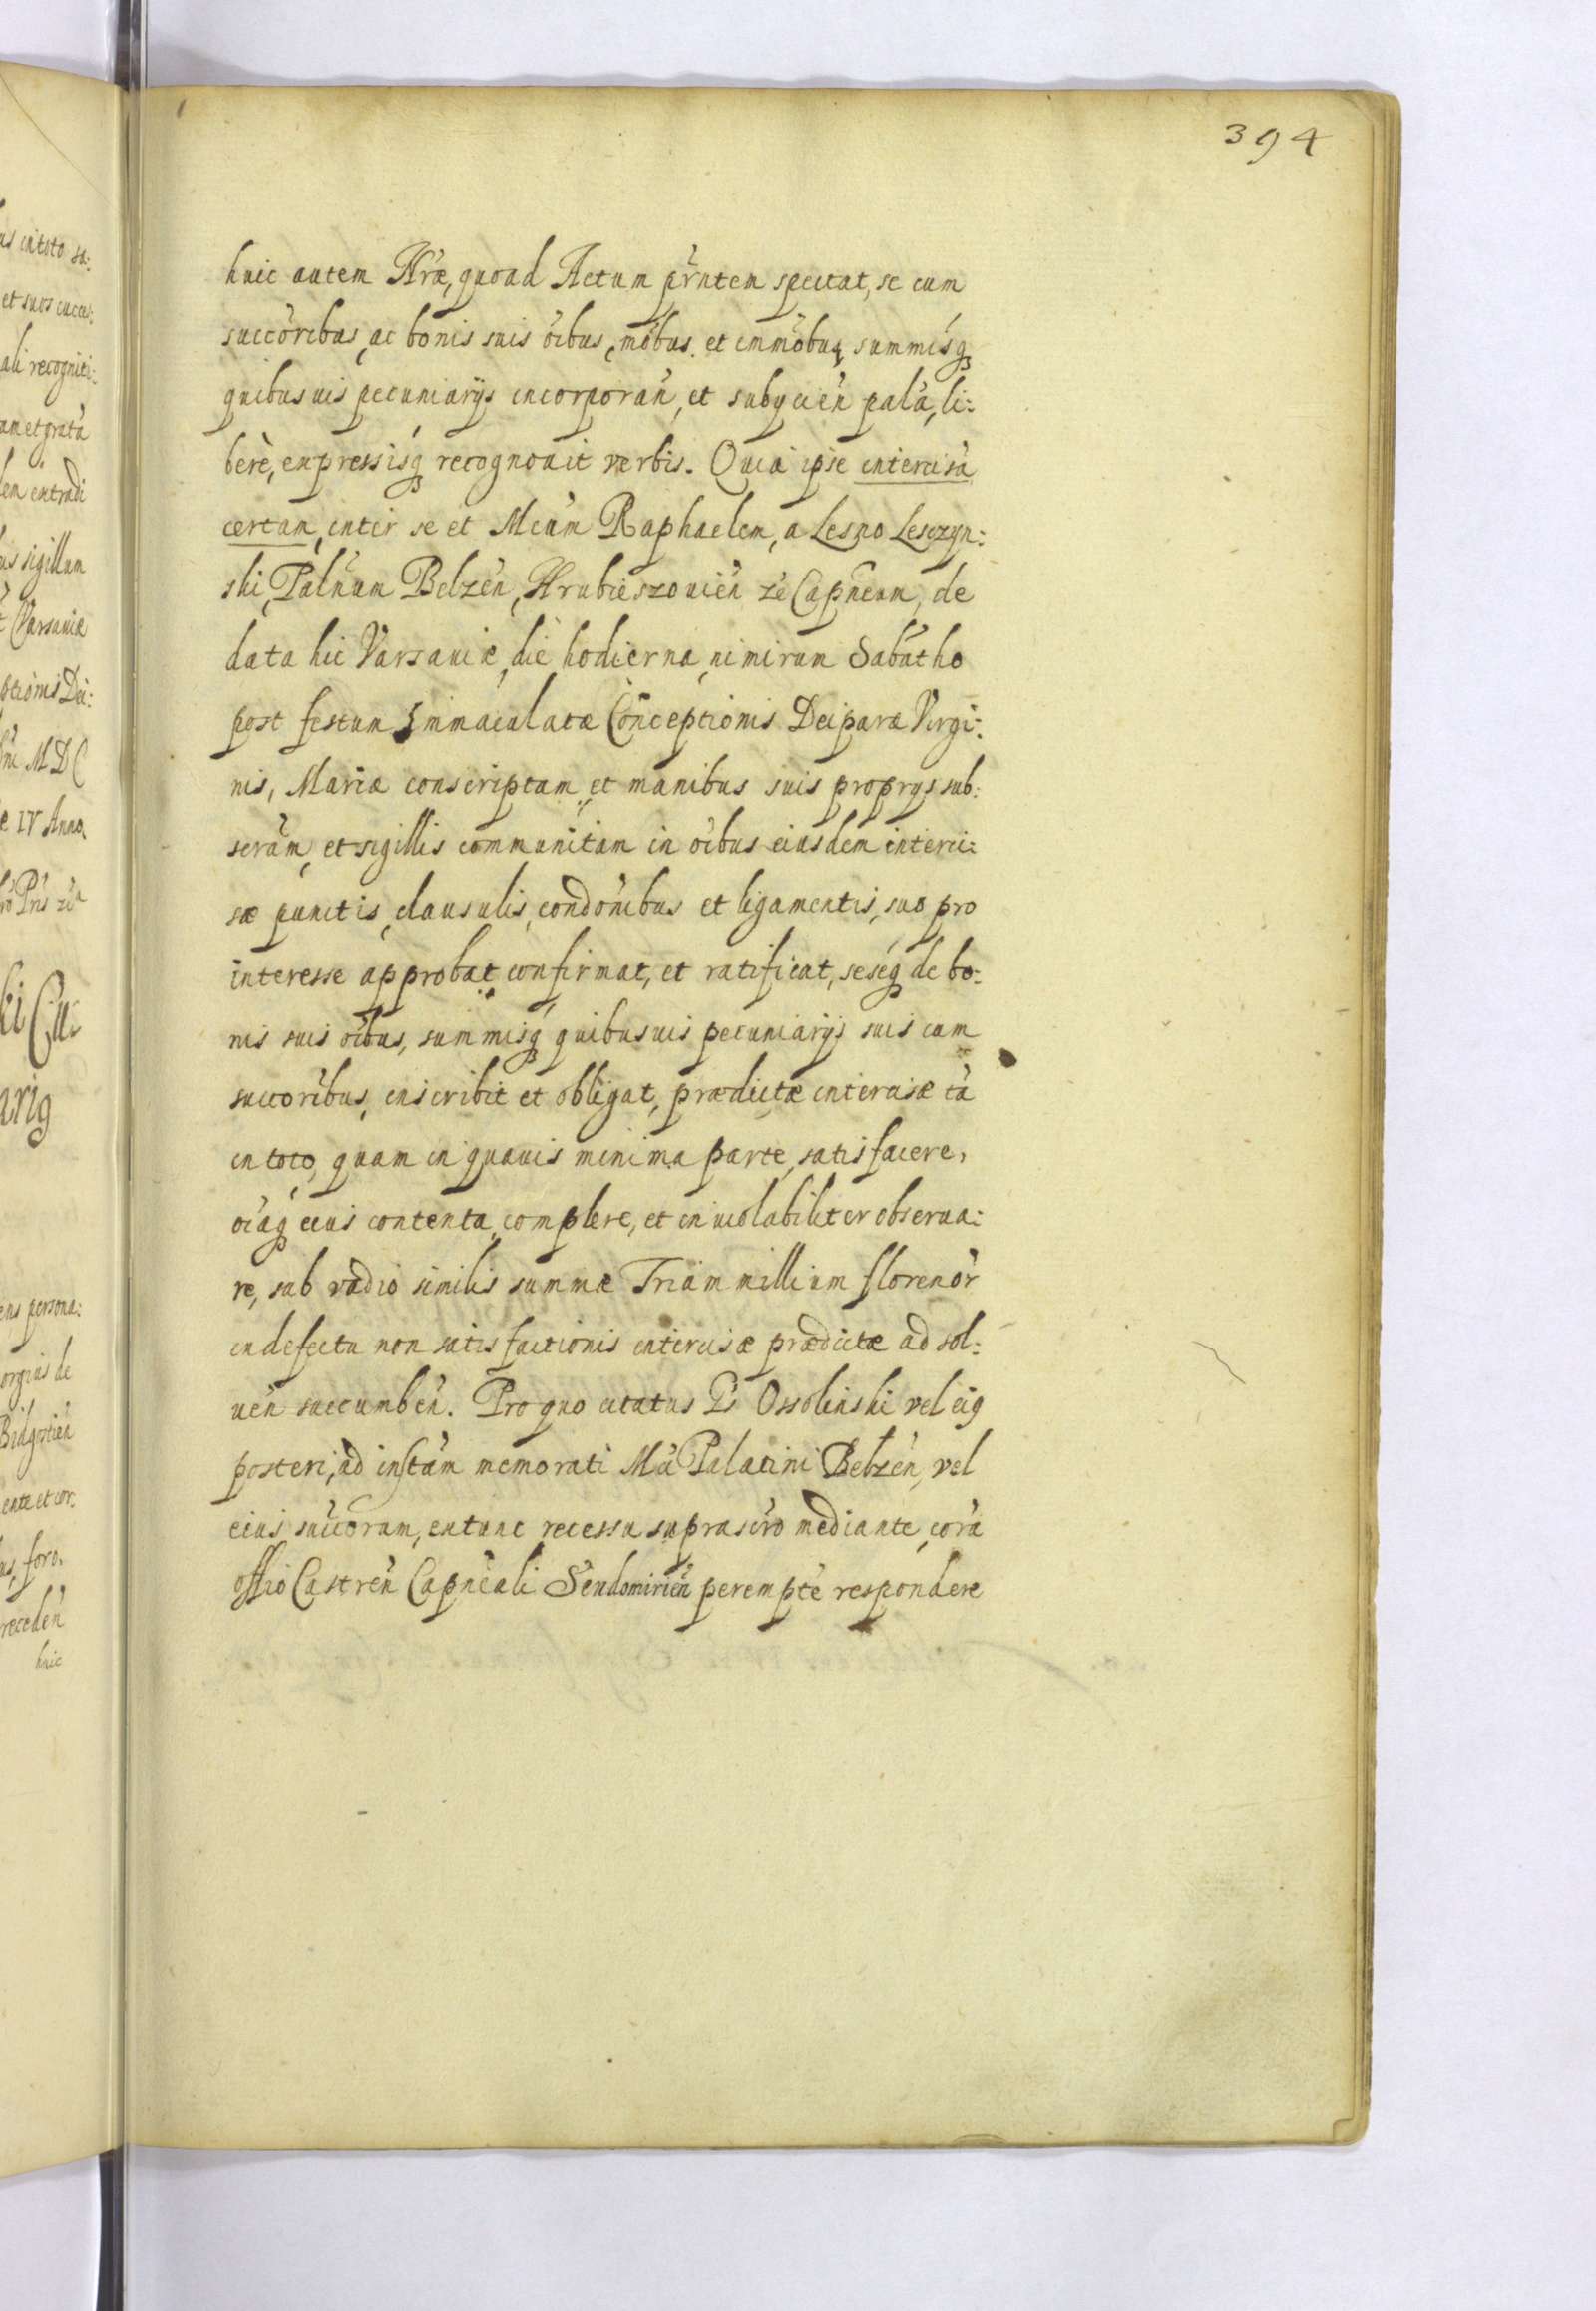 394
huic autem Nr̃æ, quoad Actum pr̃ntem spectat, se cum
succõribus, ac bonis suis oĩbus, mõbus et immõbus, summisq́
quibusuis pecuniarijs incorporań, et subijcień palã, li:
berè, expressisq́ recognouit verbis. Quia ipse intercisã
certam, inter se et Mcũm Raphaelem, a Lesno Lesczyn:
ski, Palñum Belzeń, Hrubieszouień zc̃ Capñeum, de
data hic Varsauiæ, die hodierna, nimirum Sabatho
post festum Immaculatæ Conceptionis Deiparæ Virgi:
nis, Mariæ conscriptam, et manibus suis proprys sub:
scrãm, et sigillis communitam in oĩbus eiusdem interci:
sæ punctis, clausulis, condõnibus et ligamentis, suo pro
interesse approbat, confirmat, et ratificat, seseq́ de bo:
nis suis oĩbus, summisq́ quibusuis pecuniarijs suis cum
succoribus, inscribit et obligat, prædictæ intercisæ tã
in toto, quam in quauis minima parte, satisfacere,
oĩaq́ eius contenta, complere, et inuiolabiliter obserua:
re, sub vadio similis summæ Trium millium florenor̃
in defectu non satisfactionis intercisæ prædictæ ad sol:
ueń succumbeń. Pro quo citatus Gs̃ Ossolinski vel eiq
posteri, ad instãm memorati Mci Palatini Belzeń, vel
eius succorum, extunc recessu suprascr̃o mediante, corã
offio Castreń Capñeali Sendomirień perempte respondere
us in toto sa:
et suos succes:
ali recogniti:
am et gratã
extradi
us sigillum
Varsauiæ
ptionis Dei:
M D C
IV Anno
ens persona:
orgius de
Bidgostień
ente et cor:
foro,
receden
huic